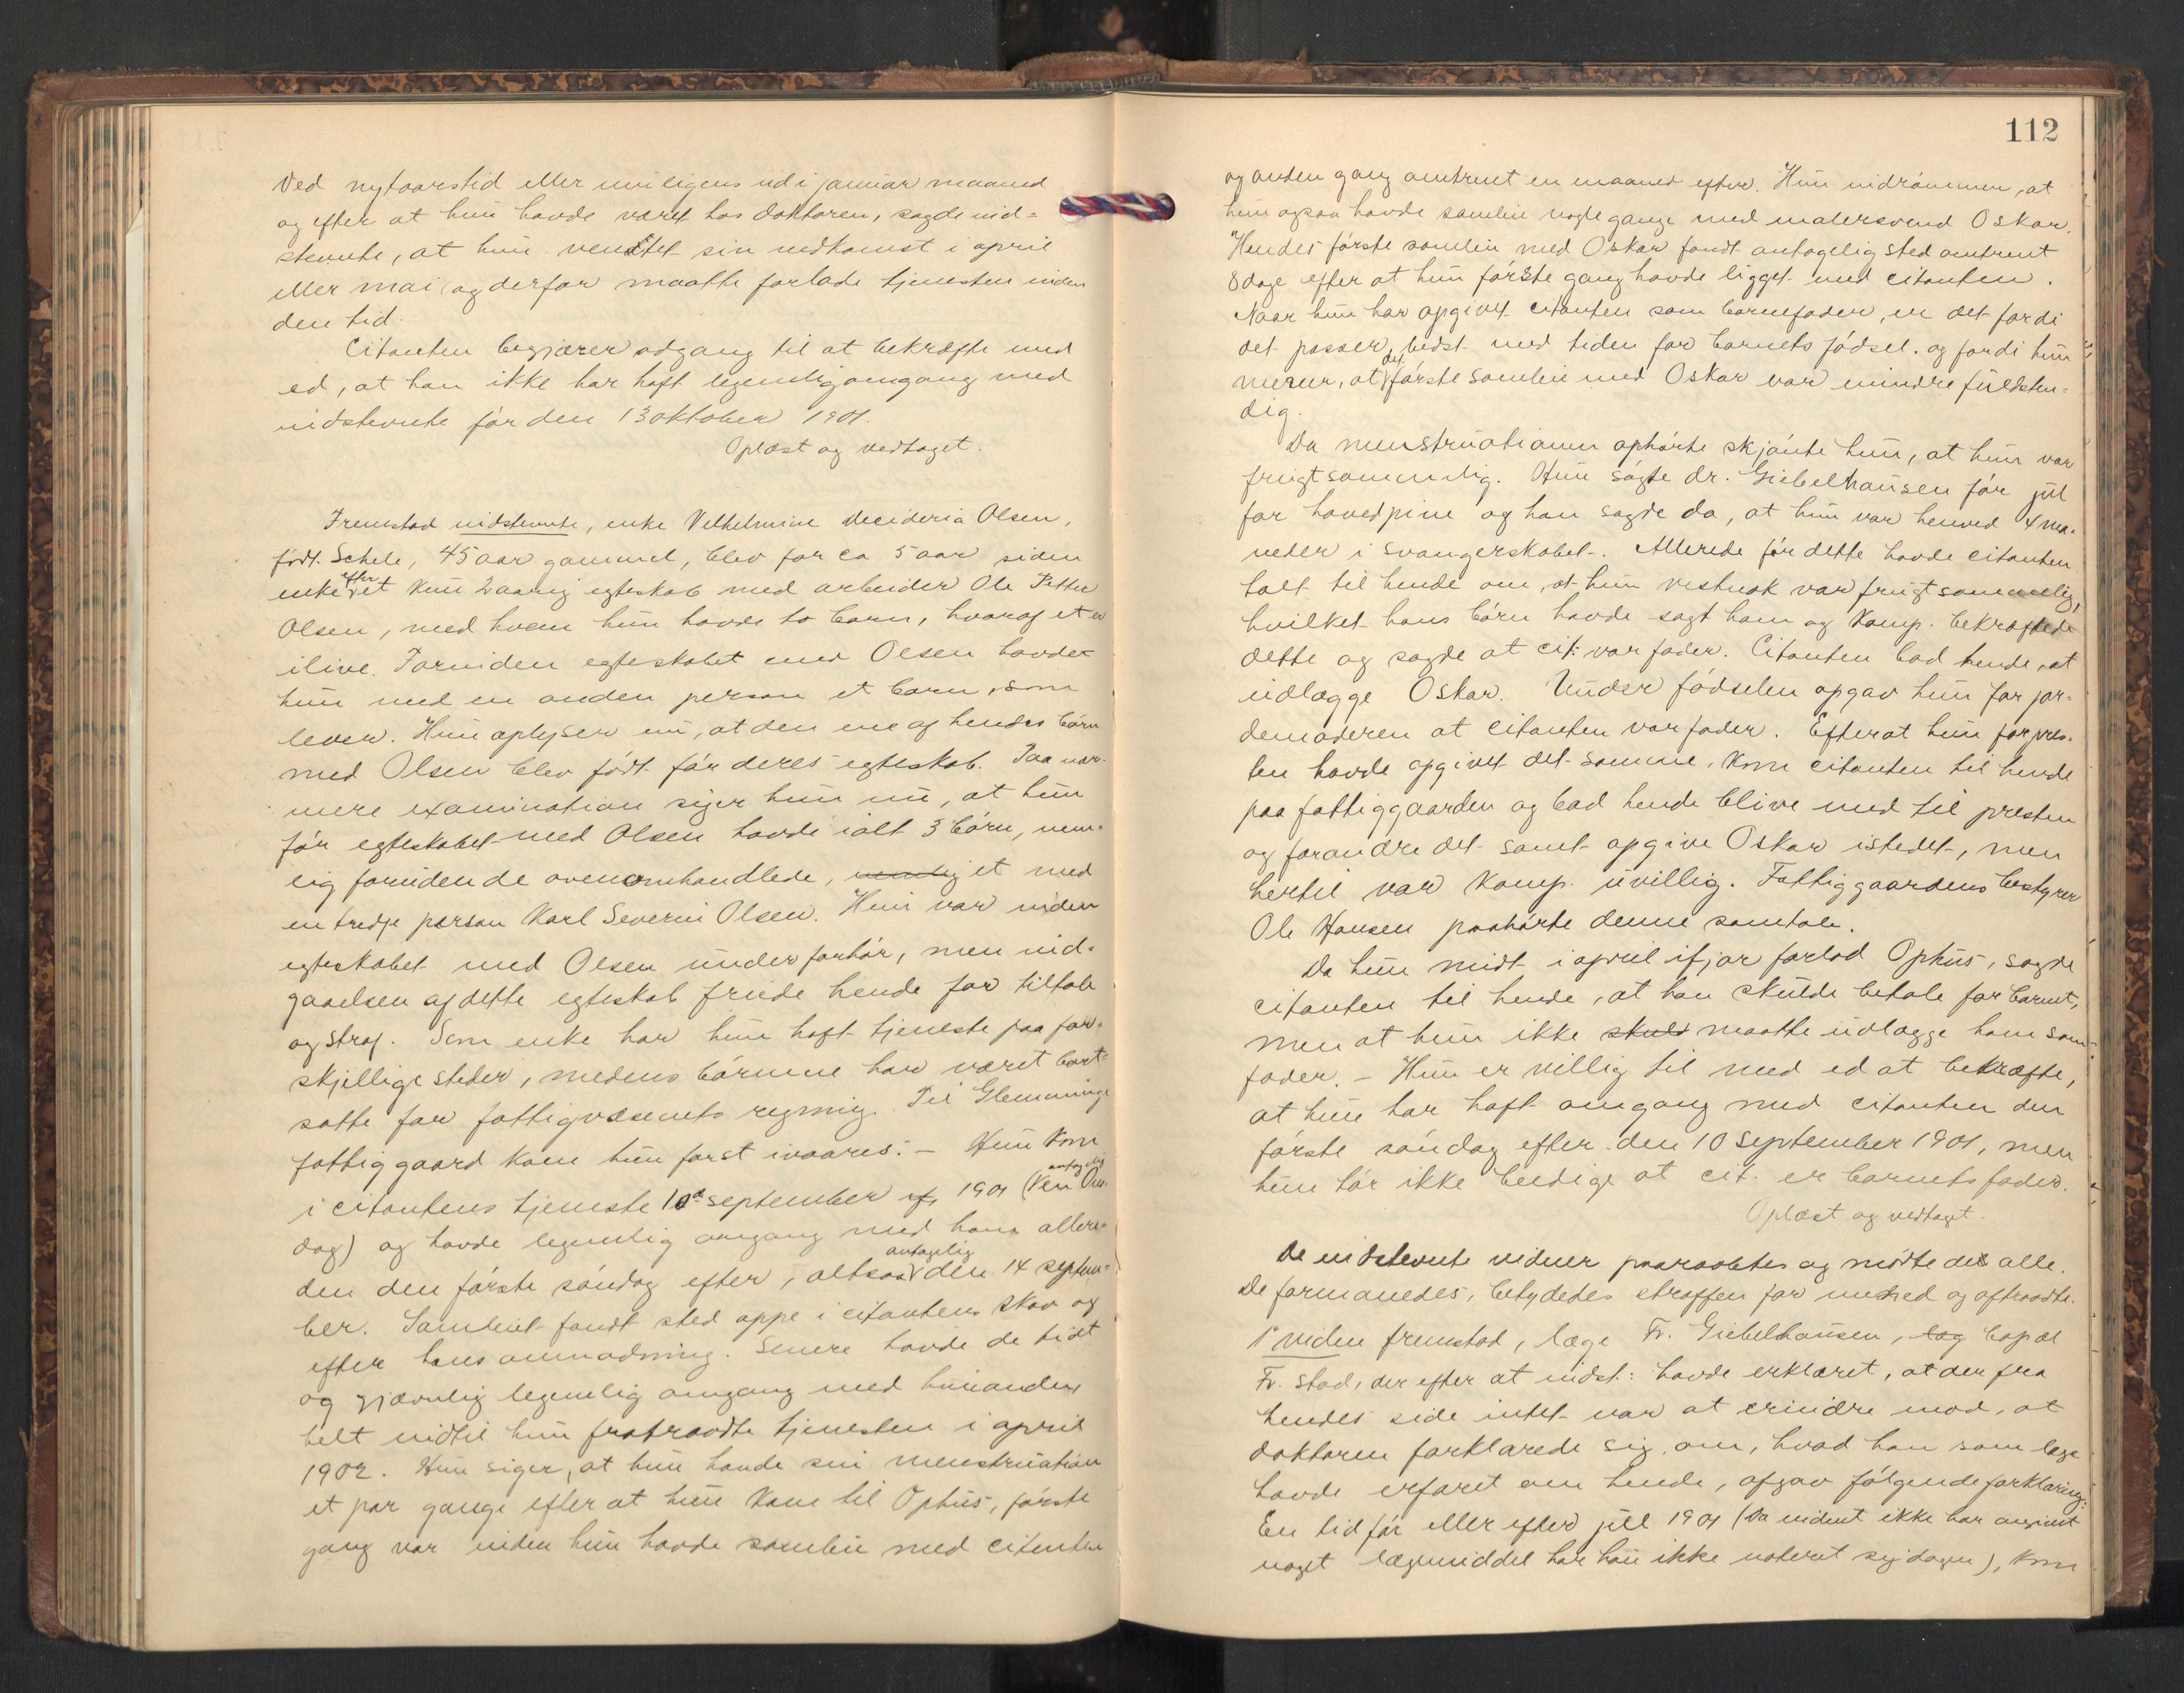 Ved nytaarstid eller muligens ud i januar maaned
og efter at hun havde været hos doktoren, sagde ind=
stevnte, at hun ventet sin nedkomst i april
eller mai og derfor maatte forlade tjenesten inden
den tid.
Citanten begjærer adgang til at bekræfte med
ed, at han ikke har haft legemlig omgang med
indstevnte før den 13 oktober 1901.
Oplæst og vedtaget.
Fremstod indstevnte, enke Vilhelmine Decideria Olsen,
født Schele, 45 aar gammel, blev for ca 5 aar siden
enke efter et kun 2 aarig egteskab med arbeider Ole Petter
Olsen, med hvem hun havde to barn, hvoraf et er
ilive. Foruden egteskabet med Olsen havde
hun med en anden person et barn, som
lever. Hun oplyser nu, at den ene af hendes børn
med Olsen blev født før deres egteskab. Paa nær-
mere examination siger hun nu, at hun
før egteskabet med Olsen havde ialt 3 børn, nem-
lig foruden de ovenomhandlede, nemlig et med
en tredje person Karl Severin Olsen. Hun var inden
egteskabet med Olsen under forhør, men ind-
gaaelsen af dette egteskab friede hende for tiltale
og straf. Som enke har hun haft tjeneste paa for-
skjellige steder, medens børnene har været bort-
satte for fattigvæsenets regning. Til Glemminge
fattiggaard kom hun først ivaares. – Hun kom
i citantens tjeneste 10de september 1901 (antagelig en Ons-
dag) og havde legemlig omgang med ham aller-
den den første søndag efter, altsaa antagelig den 14 septem-
ber. Samleiet fandt sted oppe i citantens skov og
efter hans anmodning. Senere havde de tidt
og jævnlig legemlig omgang med hinanden
helt indtil hun fratraadte tjenesten i april
1902. Hun siger, at hun havde sin menstruation
et par gange efter at hun kom til Ophus, første
gang var inden hun havde samleie med citanten
112
og anden gang omtrent en maaned efter. Hun indrømmer, at
hun ogsaa havde samleie nogle gange med malersvend Oskar.
Hendes første samleie med Oskar fandt antagelig sted omtrent
8 dage efter at hun første gang havde ligget med citanten.
Naar hun har opgivet citanten som barnefader, er det fordi
det passer bedst med tiden for barnets fødsel. og fordi hun
mener, at det første samleie med Oskar var mindre fuldsten-
dig.
Da menstruationen ophørte skjønte hun, at hun var
frugtsommelig. Hun søgte dr. Giebelhausen før jul
for hovedpine og han sagde da, at hun var henved 4 maa-
neder i svangerskabet. Allerede før dette havde citanten
talt til hende om, at hun vistnok var frugtsommelig,
hvilket hans børn havde sagt ham og komp. bekræftede
dette og sagde at cit: var fader. Citanten bad hende, at
udlægge Oskar. Under fødselen opgav hun for jor-
demoderen at citanten var fader. Efterat hun for pres-
ten havde opgivet det samme, kom citanten til hende
paa fattiggaarden og bad hende blive med til presten
og forandre det samt opgive Oskar istedet, men
hertil var komp. uvillig. Fattiggaardens bestyrer
Ole Hansen paahørte denne samtale.
Da hun midt i april ifjor forlod Ophus, sagde
citanten til hende, at han skulde betale for barnet,
men at hun ikke skuld maatte udlægge ham som
fader. – Hun er villig til med ed at bekræfte,
at hun har haft omgang med citanten den
første søndag efter den 10 september 1901, men
hun tør ikke beedige at cit. er barnets fader.
Oplæst og vedtaget.
De indstevnte vidner paaraabtes og mødte de alle.
De formanedes, betydedes straffen for mened og aftraadte.
1ste viden fremstod, læge Fr. Giebelhausen, bopæl
Fr.stad, der efter at indst: havde erklæret, at der fra
hendes side intet var at erindre mod, at
doktoren forklarede sig om, hvad han som læge
havde erfaret om hende, afgav følgende forklaring:
En tid før eller efter jul 1901 (Da vidnet ikke har angivet
noget lægemiddel har han ikke noteret sig dagen), kom